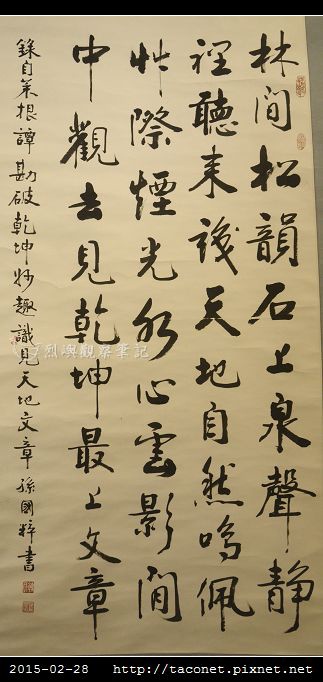 林間松韻石上泉聲靜
裡聽來識天地自然鳴佩
艸際煙光水心雲影閒
中觀去見乾坤最上文章
錄自菜根譚勘破乾坤妙趣識見天地文章 孫國粹書
烈嶼觀察筆記
2015-02-28 http://taconet.pixnet.net